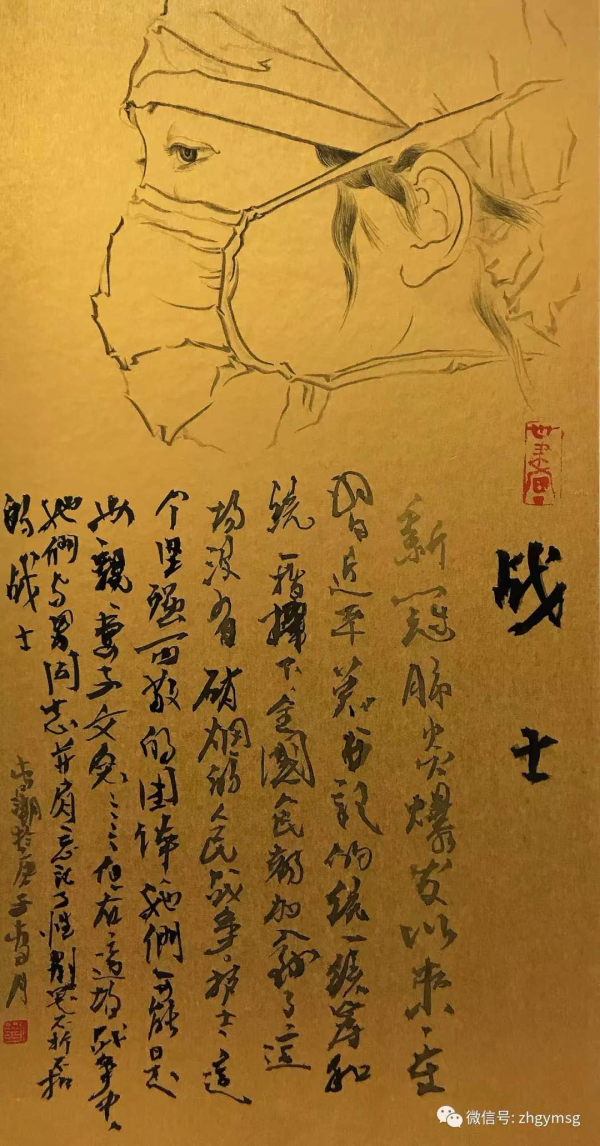 战士
新冠肺炎爆发以来，在
习近平总书记的统一领导和
统一指挥下，全国人民都加入到了这
场没有硝烟的人民战争。护士这
个坚强而敬的团体她们可能是
母亲、妻子、女儿……但在这场战争中，
她们与男同志并肩忘记了性别是不折不扣
的战士
庚子
月
微信号: zhgymsg